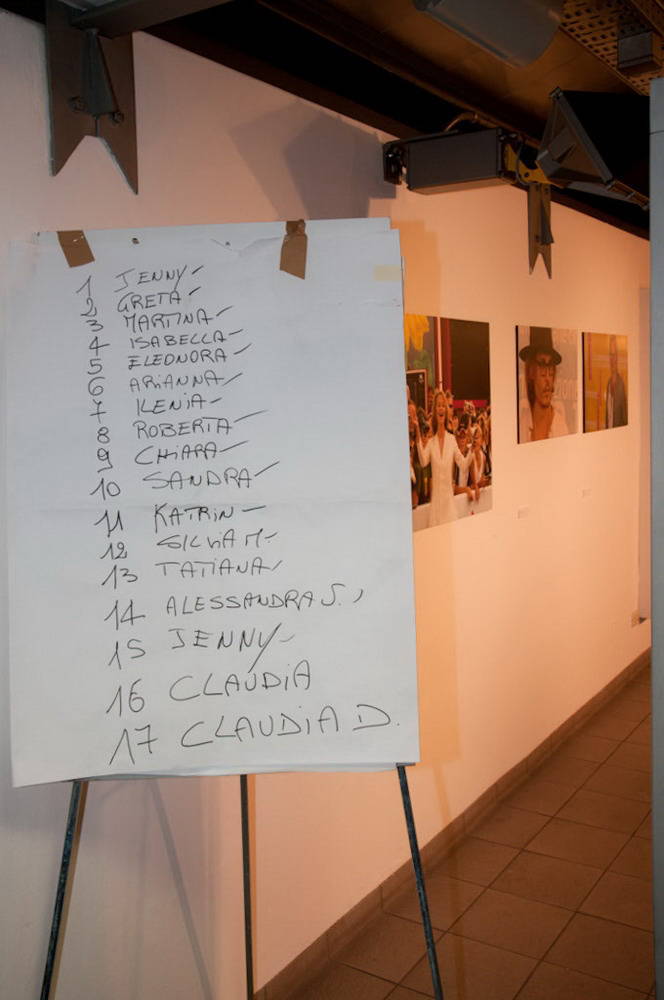 1 JENNY
2 GRETA
3 MARTINA
4 ISABELLA
5 ELEONORA
6 ARIANNA
7 ILENIA
8 ROBERTA
9 CHIARA
10 SANDRA
11 KATRIN
12 SILVIA M.
13 TATIANA
14 ALESSANDRA S.
15 JENNY
16 CLAUDIA
17 CLAUDIA D.